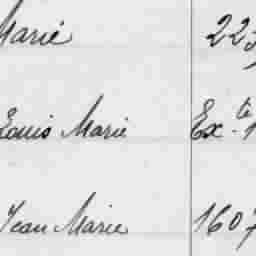 Marié 223
Louis Marie Ex.te 1
Jean Marie 1607